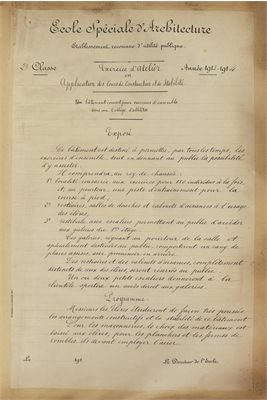 Ecole Spéciale d'Architecture
Etablissement reconnu d'utilité publique.
2e Classe Exercice d'Atelier Année 1913-1914
en
Application des Cours de Construction et de Stabilité.
Un bâtiment couvert pour exercices d'ensemble
dans un Collège d'athlètes
Exposé
Ce bâtiment est destiné à permettre, par tous les temps, les
exercices d'ensemble, tout en donnant au public la possibilité
d'y assister.
Il comprendra, au rez de chaussée:
1° localité consacrée aux exercices pour 150 individus à la fois,
et, au pourtour, une piste d'entrainement pour la
course à pied,
2° vestiaires, salles de douches et cabinets d'aisances à l'usage
des élèves,
3° vestibule aux escaliers permettant au public d'accéder
aux galeries du 1er étage.
Ces galeries, régnant au pourtour de la salle et
spécialement destinées au public, comporteront un rang de
places assises, avec promenoir en arrière.
Des vestiaires et des cabinets d'aisances, complètement
distincts de ceux des élèves, seront réservés au public.
Un ou deux petits escaliers donneront à la
clientèle sportive un accès direct aux galeries.
Programme.
Messieurs les élèves étudieront de façon très poussée
les arrangements constructifs et la stabilité de ce bâtiment
Pour les maçonneries, le choix des matériaux est
laissé aux élèves, pour les planchers et les fermes de
combles, ils devront employer l'acier.
Le 191 Le Directeur de l'Ecole.